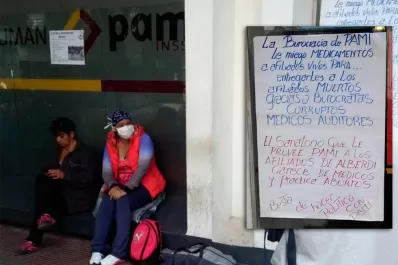 UMÁN
pami
INSS
La Burocracia de PAMI
Le niega MEDICAMENTOS
a afiliados VIVOS PARA...
entregarles a Los
afiliados MUERTOS
gracias a BUROCRATAS
CORRUPTOS
MEDICOS AUDITORES
El Sanatorio QUE LE
PROVEE PAMI A LOS
AFILIADOS DE ALBERDI
Carece DE MEDICOS
y Practica ABORTOS
Basta de hacer Politica